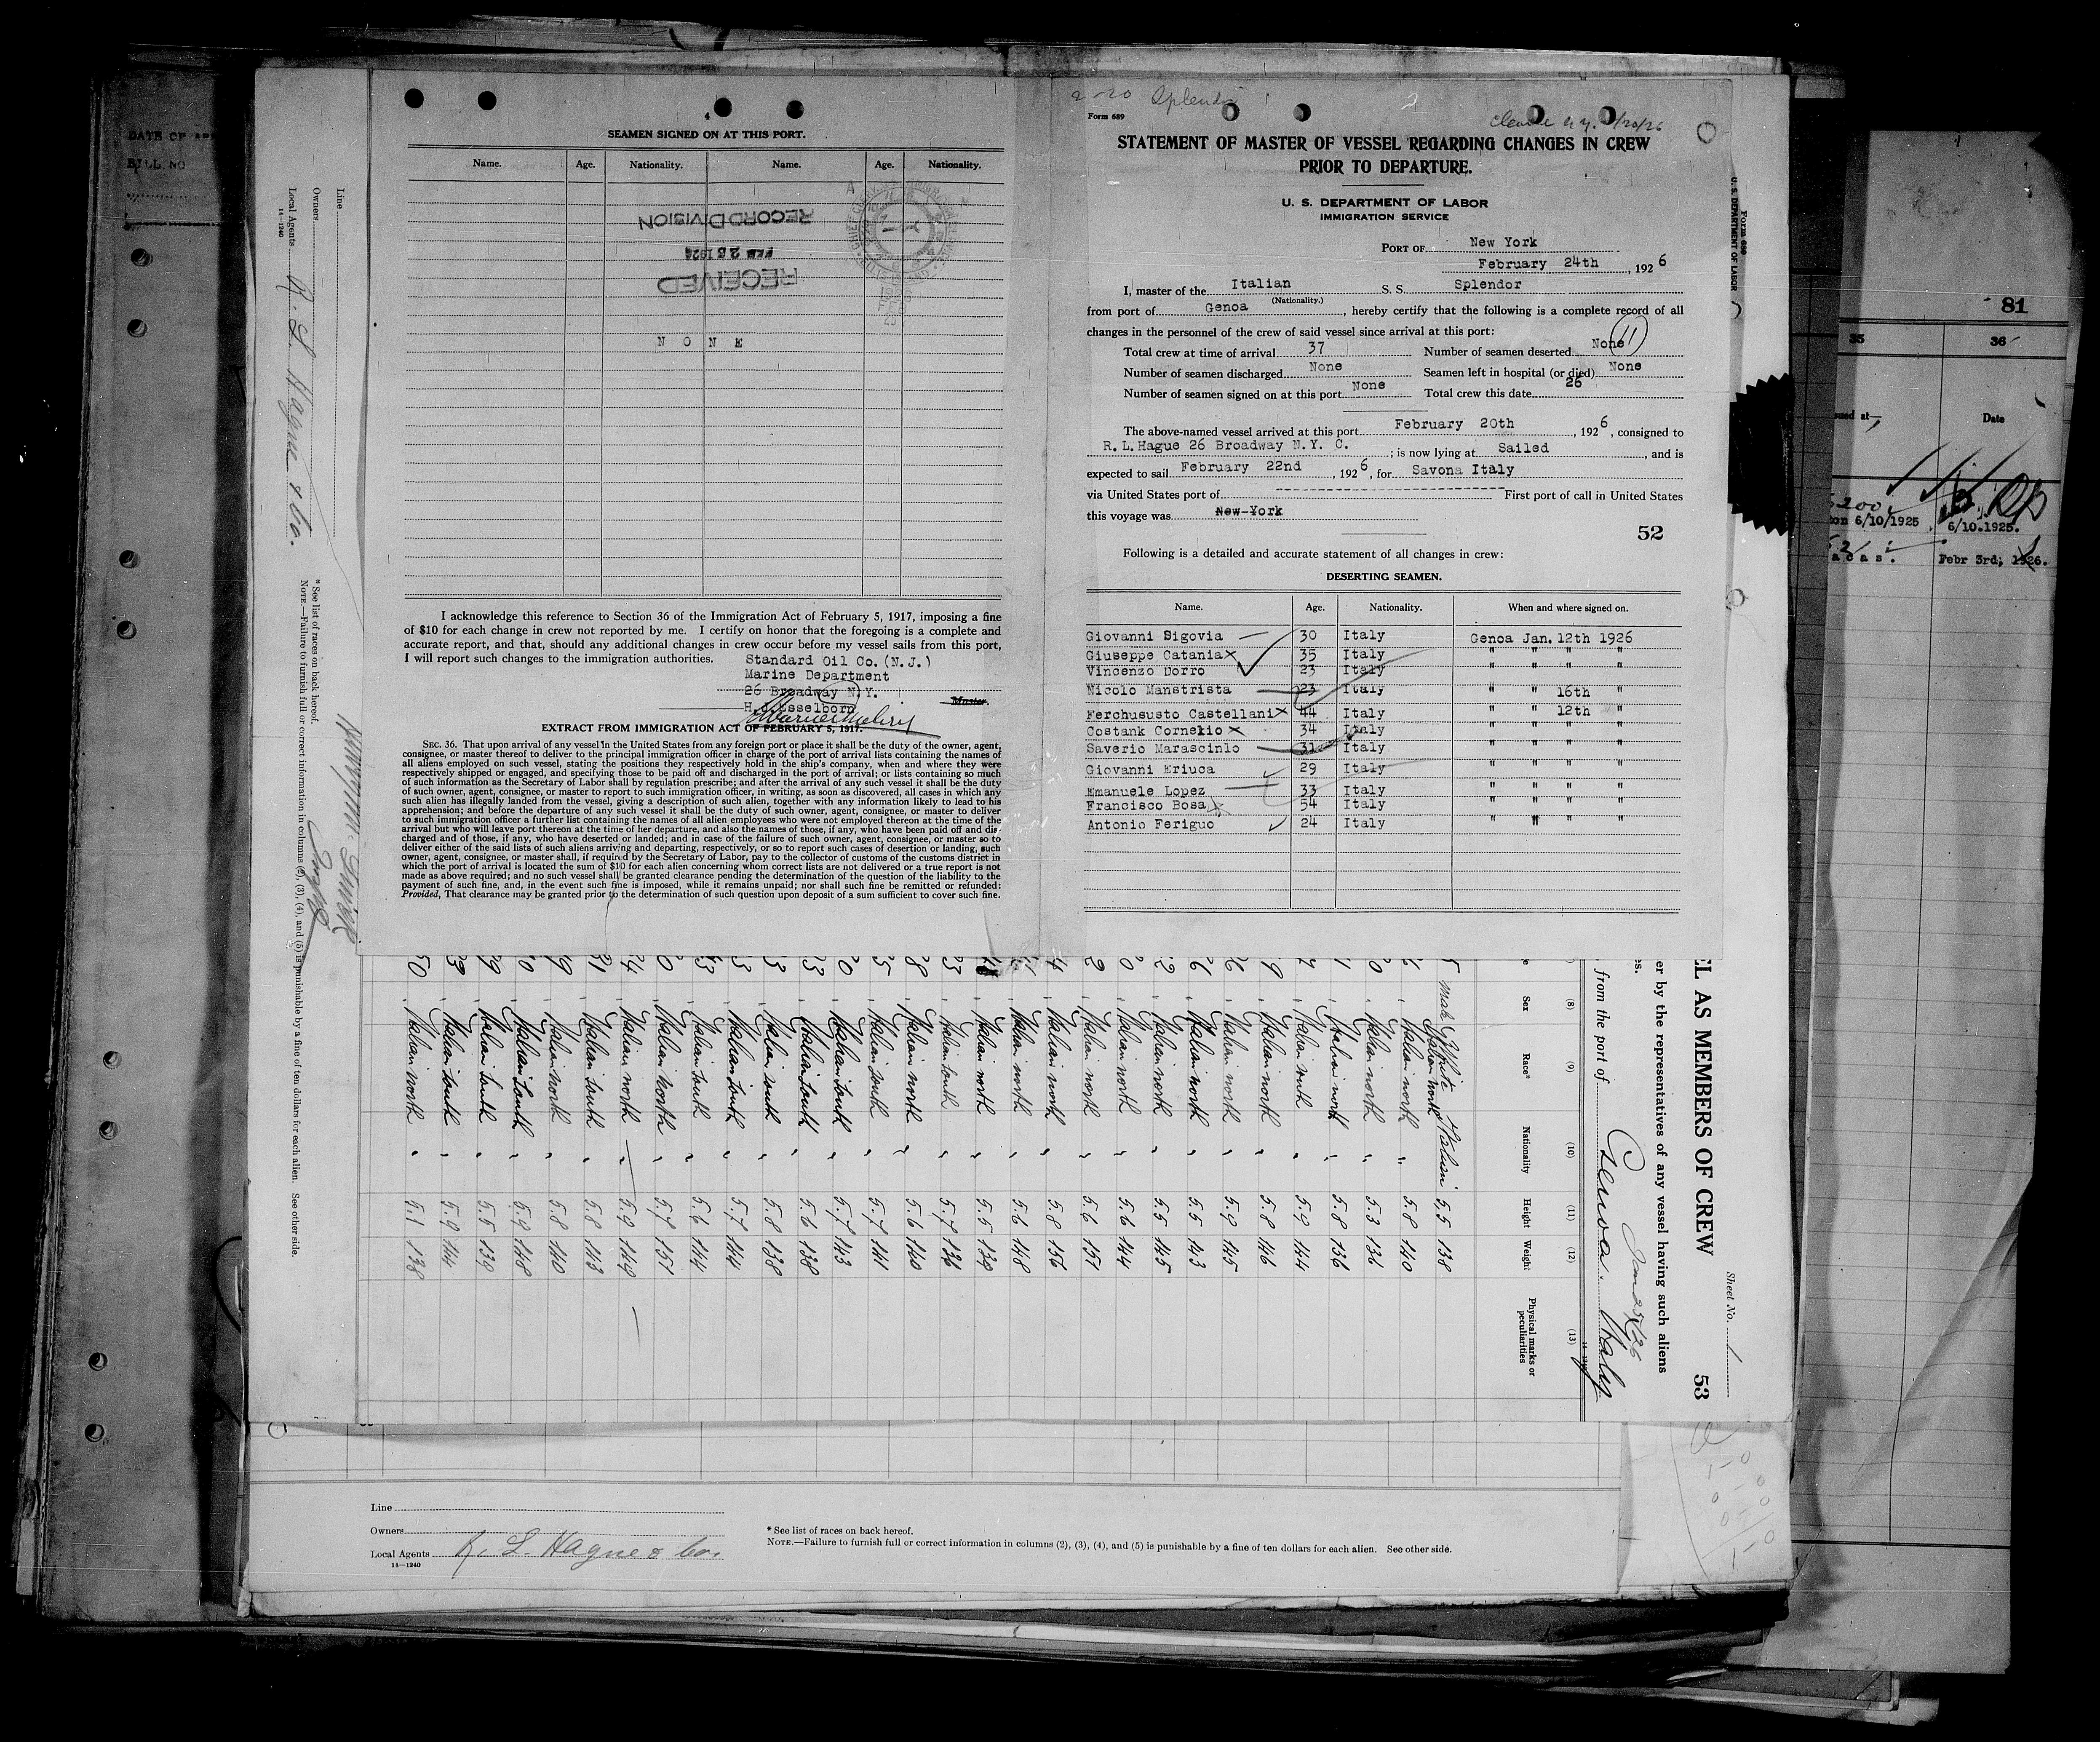 4
SEAMEN SIGNED ON AT THIS PORT.
Name. Age. Nationality. Name. Age. Nationality.
RECORD DIVISION
FEB 25 1926
RECEIVED
N O N E
I acknowledge this reference to Section 36 of the Immigration Act of February 5, 1917, imposing a fine
of $10 for each change in crew not reported by me. I certify on honor that the foregoing is a complete and
accurate report, and that, should any additional changes in crew occur before my vessel sails from this port,
I will report such changes to the immigration authorities.
Standard Oil Co. (N.J.)
Marine Department
26 Broadway N.Y.
H. Esselborn
Master.
EXTRACT FROM IMMIGRATION ACT OF FEBRUARY 5, 1917.
SEC. 36. That upon arrival of any vessel in the United States from any foreign port or place it shall be the duty of the owner, agent,
consignee, or master thereof to deliver to the principal immigration officer in charge of the port of arrival lists containing the names of
all aliens employed on such vessel, stating the positions they respectively hold in the ship's company, when and where they were
respectively shipped or engaged, and specifying those to be paid off and discharged in the port of arrival; or lists containing so much
of such information as the Secretary of Labor shall by regulation prescribe; and after the arrival of any such vessel it shall be the duty
of such owner, agent, consignee, or master to report to such immigration officer, in writing, as soon as discovered, all cases in which any
such alien has illegally landed from the vessel, giving a description of such alien, together with any information likely to lead to his
apprehension; and before the departure of any such vessel it shall be the duty of such owner, agent, consignee, or master to deliver
to such immigration officer a further list containing the names of all alien employees who were not employed thereon at the time of the
arrival but who will leave port thereon at the time of her departure, and also the names of those, if any, who have been paid off and dis
charged and of those, if any, who have deserted or landed; and in case of the failure of such owner, agent, consignee, or master so to
deliver either of the said lists of such aliens arriving and departing, respectively, or so to report such cases of desertion or landing, such
owner, agent, consignee, or master shall, if required by the Secretary of Labor, pay to the collector of customs of the customs district in
which the port of arrival is located the sum of $10 for each alien concerning whom correct lists are not delivered or a true report is not
made as above required; and no such vessel shall be granted clearance pending the determination of the question of the liability to the
payment of such fine, and, in the event such fine is imposed, while it remains unpaid; nor shall such fine be remitted or refunded:
Provided, That clearance may be granted prior to the determination of such question upon deposit of a sum sufficient to cover such fine.
2-20 Splendor
2
Form 689
STATEMENT OF MASTER OF VESSEL REGARDING CHANGES IN CREW
PRIOR TO DEPARTURE.
U. S. DEPARTMENT OF LABOR
IMMIGRATION SERVICE
PORT OF New York
February 24th, 1926
I, master of the Italian S. S. Splendor
(Nationality.)
from port of Genoa, hereby certify that the following is a complete record of all
changes in the personnel of the crew of said vessel since arrival at this port:
Total crew at time of arrival 37 Number of seamen deserted None 11
Number of seamen discharged None Seamen left in hospital (or died) None
Number of seamen signed on at this port None Total crew this date 26
The above-named vessel arrived at this port February 20th, 1926, consigned to
R.L.Hague 26 Broadway N.Y. C.; is now lying at Sailed, and is
expected to sail February 22nd, 1926, for Savona Italy
via United States port of First port of call in United States
this voyage was New-York
52
Following is a detailed and accurate statement of all changes in crew:
DESERTING SEAMEN.
Name. Age. Nationality. When and where signed on.
Giovanni Sigovia 30 Italy Genoa Jan. 12th 1926
Giuseppe Catania 35 Italy " " " "
Vincenzo Dorro 23 Italy " " " "
Nicolo Manstrista 23 Italy " " 16th "
Ferchususto Castellani 44 Italy " " 12th "
Costank Cornelio 34 Italy " " " "
Saverio Marascinlo 31 Italy " " " "
Giovanni Eriuca 29 Italy " " " "
Emanuele Lopez 33 Italy " " " "
Francisco Bosa 54 Italy " " " "
Antonio Feriguo 24 Italy " " " "
Form 689
U. S. DEPARTMENT OF LABOR
Line
Owners
Local Agents R. L. Hague & Co.
14—1240
* See list of races on back hereof.
NOTE.—Failure to furnish full or correct information in columns (2), (3), (4), and (5) is punishable by a fine of ten dollars for each alien. See other side.
Sheet No. 1
EL AS MEMBERS OF CREW 53
er by the representatives of any vessel having such aliens
from the port of Genoa. Italy
Jan 25/26
(8) (9) (10) (11) (12) (13)
Sex Race* Nationality Height Weight Physical marks or peculiarities
male White Italian 5.5 138
Italian north " 5.8 140
Italian north " 5.3 136
Italian north " 5.8 136
Italian north " 5.9 144
Italian north " 5.8 146
Italian north " 5.9 145
Italian north " 5.5 143
Italian north " 5.5 145
Italian north " 5.6 144
Italian north " 5.6 151
Italian north " 5.8 156
Italian north " 5.6 148
Italian north " 5.5 139
Italian South " 5.7 136
Italian north " 5.6 140
Italian South " 5.7 141
Italian South " 5.7 143
Italian South " 5.6 138
Italian South " 5.8 138
Italian South " 5.7 144
Italian South " 5.6 144
Italian north " 5.7 151
Italian north " 5.9 149
Italian South " 5.8 143
Italian north " 5.8 140
Italian South " 5.9 148
Italian South " 5.5 139
Italian South " 5.9 144
Italian north " 5.1 138
Line
Owners
Local Agents R. L. Hague & Co.
14—1240
* See list of races on back hereof.
NOTE.—Failure to furnish full or correct information in columns (2), (3), (4), and (5) is punishable by a fine of ten dollars for each alien. See other side.
81
35 36
Date
on 6/10/1925 6/10.1925.
Febr 3rd, 1926.
DATE OF
BILL NO